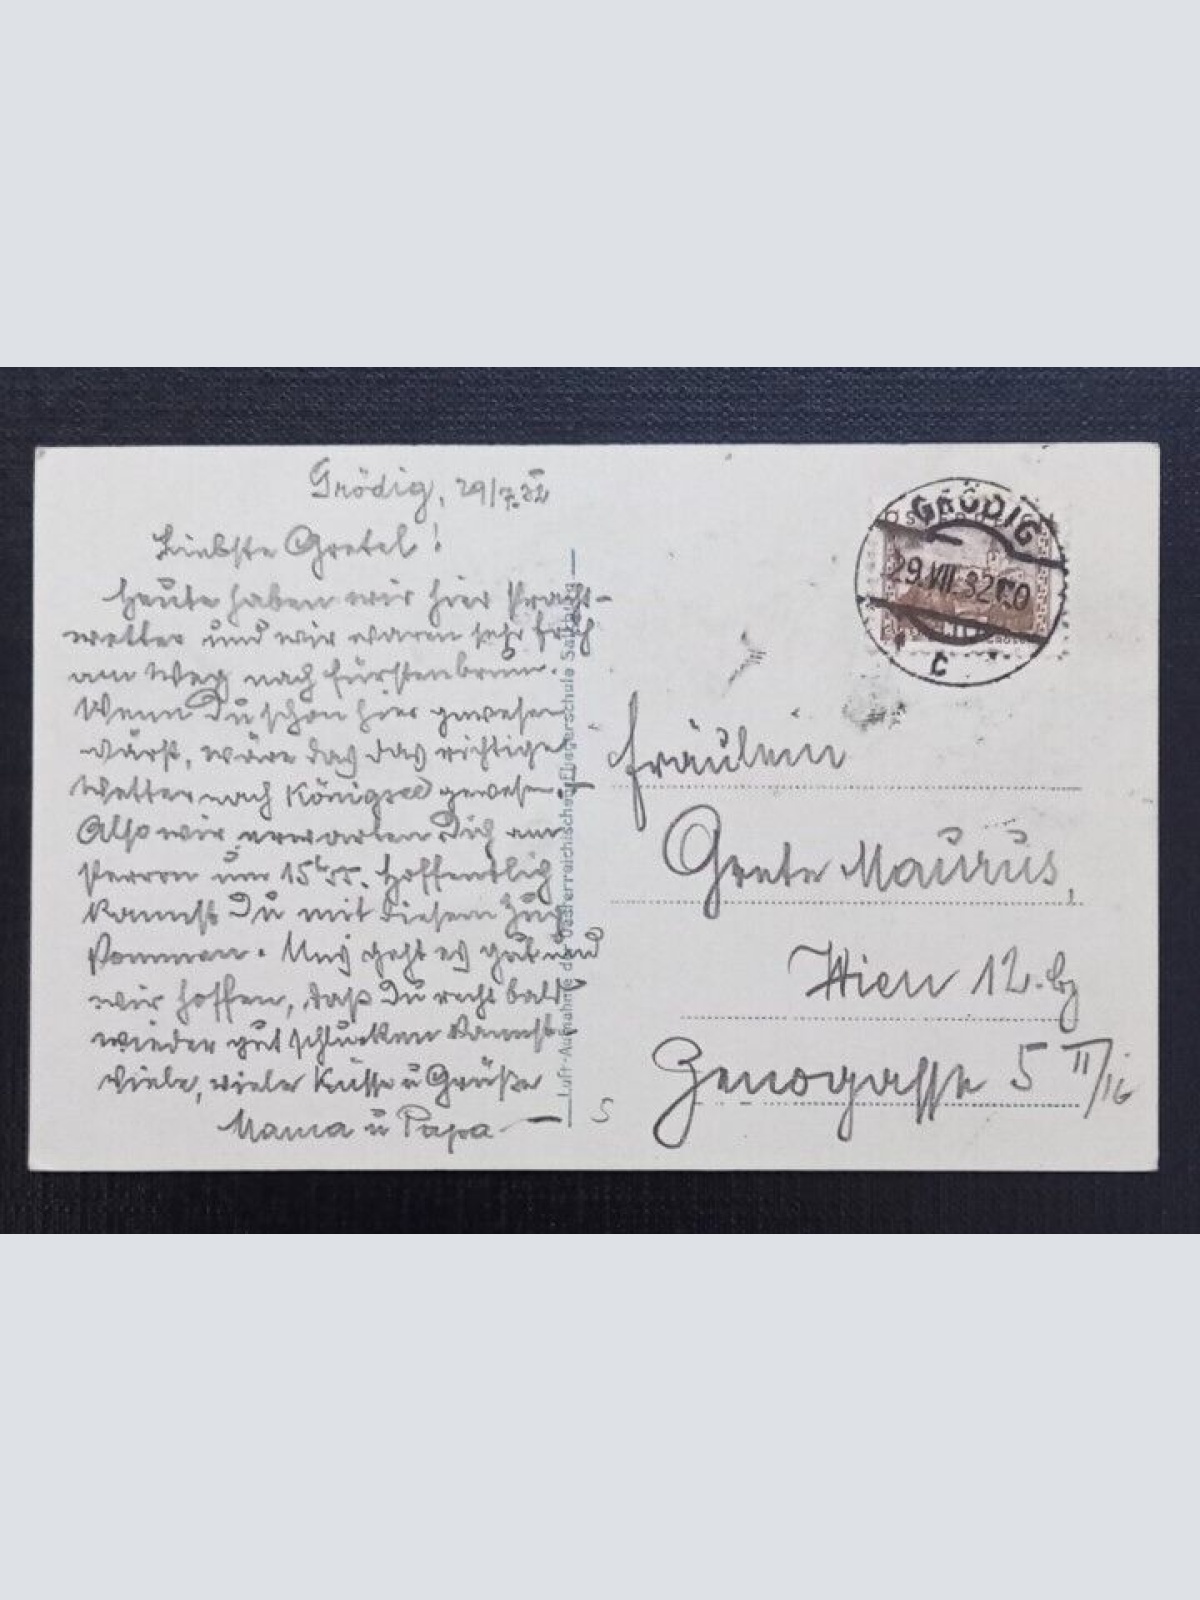 Grödig, 29/7.32
Liebste Gretel!
Heute haben wir hier Pracht-
wetter und wir waren sehr früh
am Weg nach Fürstenbrunn.
Wenn Du schon hier gewesen
wärst, wäre das das richtige
Wetter nach Königsee gewesen.
Also wir erwarten Dich am
Perron um 15h55. Hoffentlich
kannst Du mit diesem Zug
kommen. Uns geht es gut und
wir hoffen, daß Du recht bald
wieder gut schlucken kannst.
Viele, viele Küsse u Grüße
Mama u Papa
Luft-Aufnahme der Österreichischen Fliegerschule Salzburg
GRÖDIG
29.VII.32
c
Fräulein
Grete Maurus,
Wien 12. Bz
Zenogasse 5 II/16
5